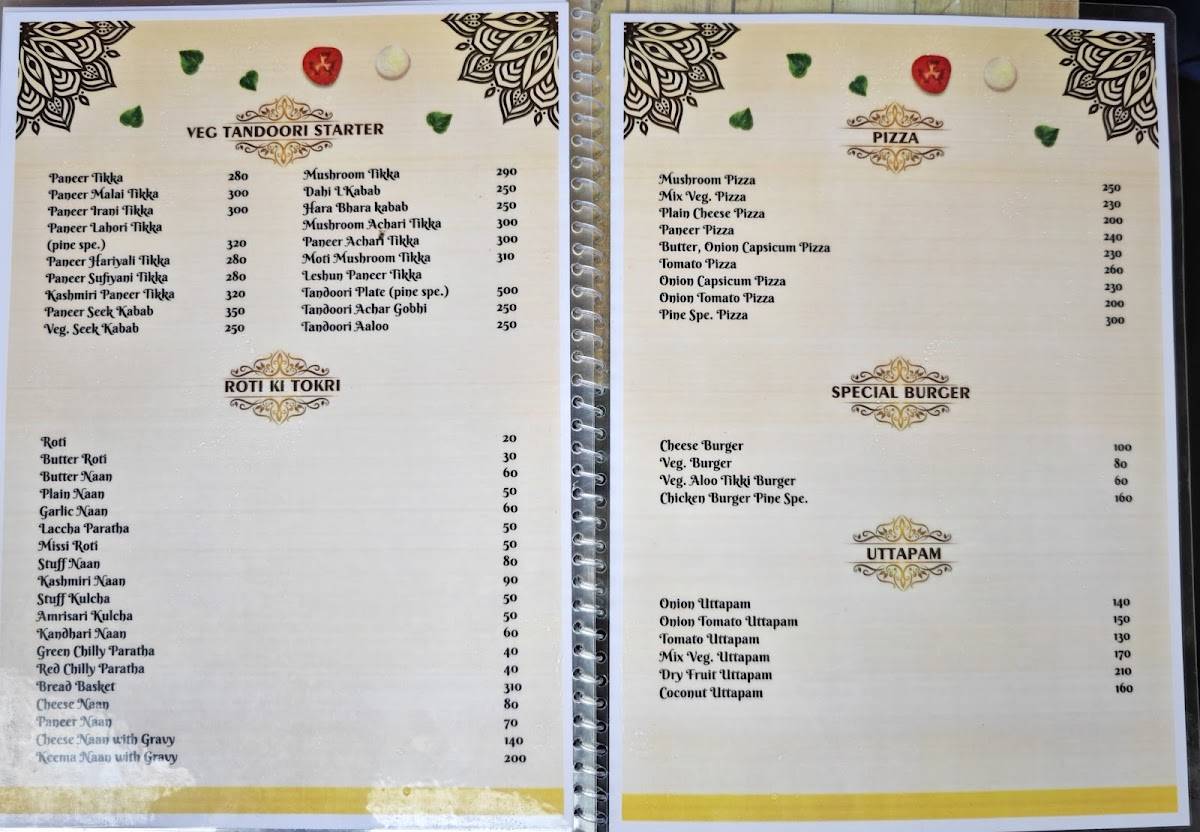 VEG TANDOORI STARTER
Paneer Tikka 280
Paneer Malai Tikka 300
Paneer Irani Tikka 300
Paneer Lahori Tikka
(pine spe.) 320
Paneer Hariyali Tikka 280
Paneer Sufiyani Tikka 280
Kashmiri Paneer Tikka 320
Paneer Seek Kabab 350
Veg. Seek Kabab 250
Mushroom Tikka 290
Dahi L Kabab 250
Hara Bhara kabab 250
Mushroom Achari Tikka 300
Paneer Achari Tikka 300
Moti Mushroom Tikka 310
Leshun Paneer Tikka
Tandoori Plate (pine spe.) 500
Tandoori Achar Gobhi 250
Tandoori Aaloo 250
ROTI KI TOKRI
Roti 20
Butter Roti 30
Butter Naan 60
Plain Naan 50
Garlic Naan 60
Laccha Paratha 50
Missi Roti 50
Stuff Naan 80
Kashmiri Naan 90
Stuff Kulcha 50
Amrisari Kulcha 50
Kandhari Naan 60
Green Chilly Paratha 40
Red Chilly Paratha 40
Bread Basket 310
Cheese Naan 80
Paneer Naan 70
Cheese Naan with Gravy 140
Keema Naan with Gravy 200
PIZZA
Mushroom Pizza 250
Mix Veg. Pizza 230
Plain Cheese Pizza 200
Paneer Pizza 240
Butter, Onion Capsicum Pizza 230
Tomato Pizza 260
Onion Capsicum Pizza 230
Onion Tomato Pizza 200
Pine Spe. Pizza 300
SPECIAL BURGER
Cheese Burger 100
Veg. Burger 80
Veg. Aloo Tikki Burger 60
Chicken Burger Pine Spe. 160
UTTAPAM
Onion Uttapam 140
Onion Tomato Uttapam 150
Tomato Uttapam 130
Mix Veg. Uttapam 170
Dry Fruit Uttapam 210
Coconut Uttapam 160